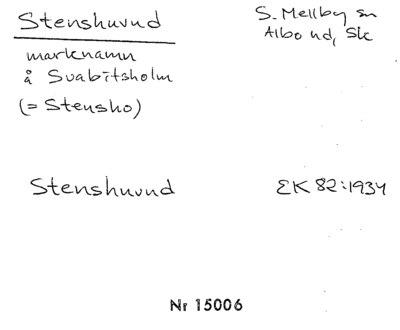 Stenshuvud
S. Mellby sn
Albo hd, Sk
marknamn
å Svabitsholm
(= Stensho)
Stenshuvud
EK 82:1934
Nr 15006